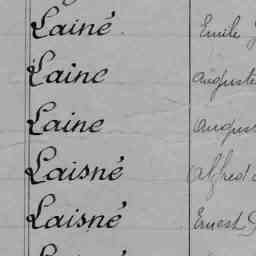 Lainé Emile
Laine Auguste
Laine August
Laisné Alfred
Laisné Ernest